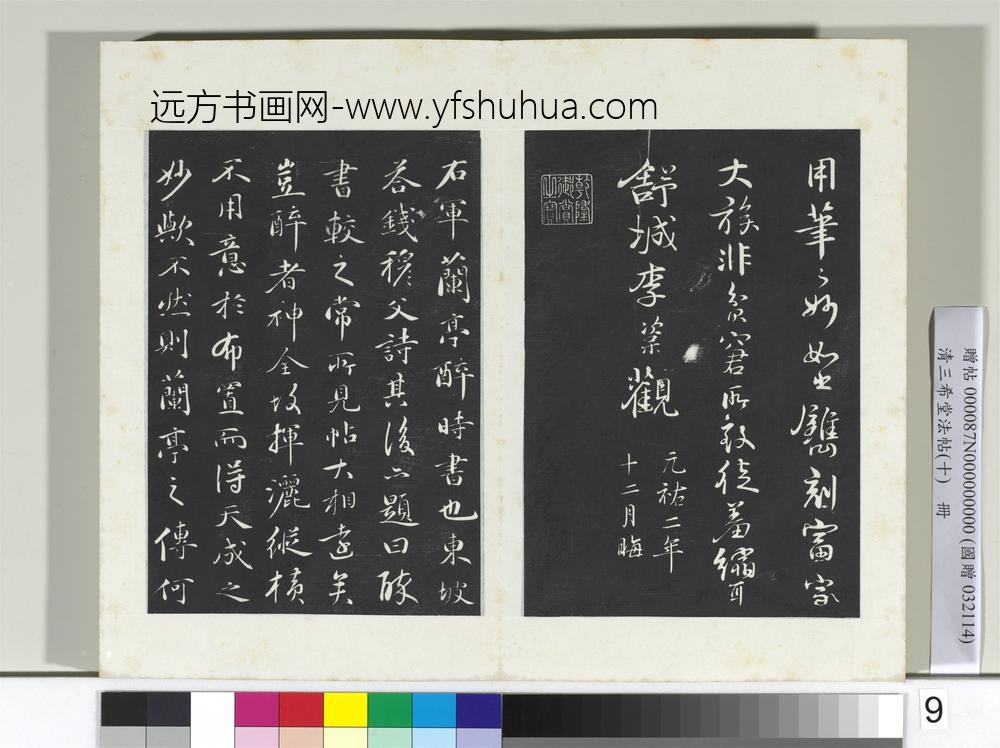 远方书画网-www.yfshuhua.com
用筆之妙如刻富家
大族非貧窘所致徒羞縮耳
舒城李楶觀
元祐二年
十二月晦
乾隆
御賞
之寶
右軍蘭亭醉時書也東坡
答錢穆父詩其後亦題曰醉
書較之常所見帖大相遠矣
豈醉者神全故揮灑縱橫
不用意於布置而得天成之
妙歟不然則蘭亭之傳何
贈帖 000087N000000000 (國贈 032114)
清三希堂法帖(十) 冊
9